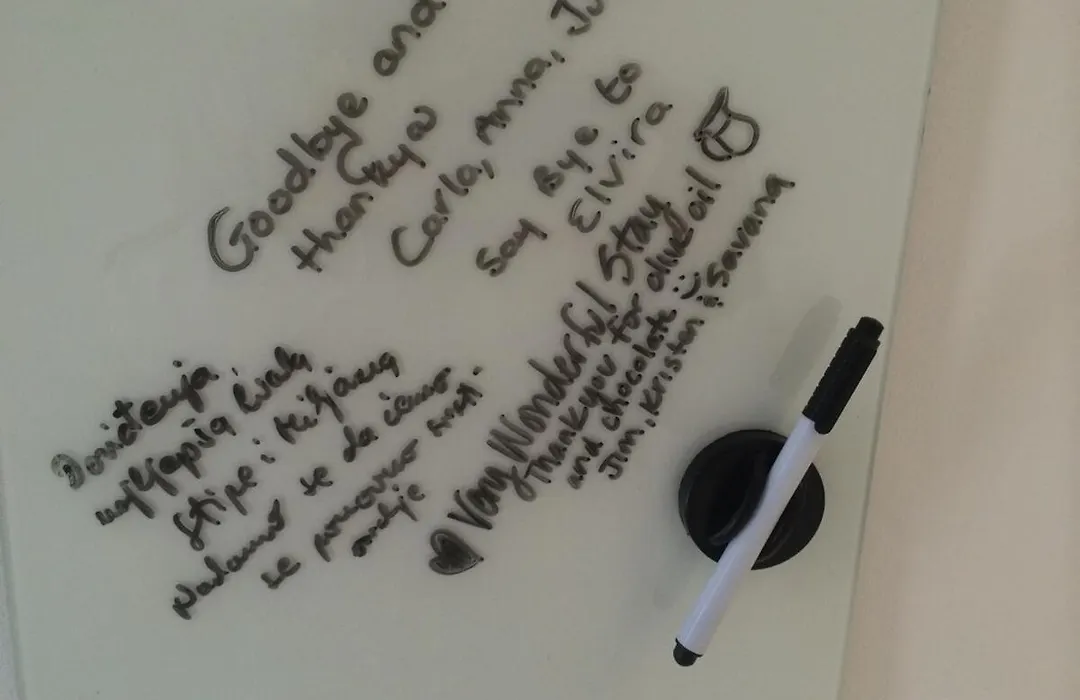 Goodbye and
thankyou
Carla, Anna, Ju
Say Bye to
Elvira
Very Wonderful Stay
Thankyou for olive oil
and chocolate :)
Jim, Kristen & Savana
Doviđenja
najljepša
Stipe i Miljana
Nadamo se da ćemo
se ponovo sresti.
ovdje